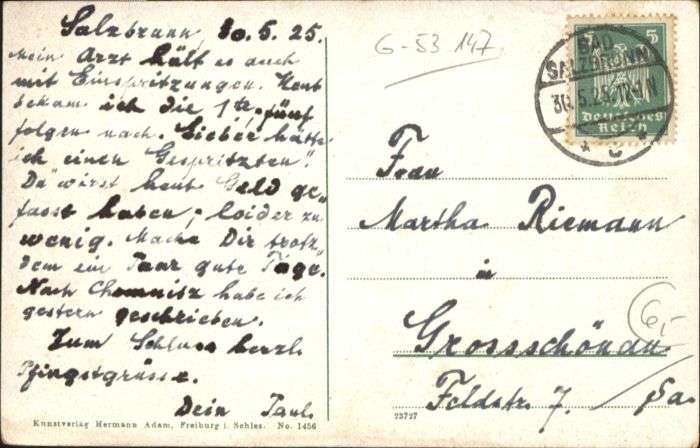 Salzbrunn, 30.5.25.
Mein Arzt hält es auch
mit Einspritzungen. Heut
bekam ich die 1te, fünf
folgen nach. Lieber hätte
ich einen „Gespritzten“.
Du wirst heut Geld ge„
fasst haben; leider zu
wenig. Mache Dir trotz„
dem ein Paar gute Tage.
Nach Chemnitz habe ich
gestern geschrieben.
Zum Schluss herzl.
Pfingstgrüsse.
Dein Paul.
Kunstverlag Hermann Adam, Freiburg i. Schles. No. 1456
G-53 147
5 5
Deutsches
Reich
BAD
SALZBRUNN
30.5.25
Frau
Martha Riemann
in
Grossschönau
Feldstr. 7. Sa.
6,-
23727